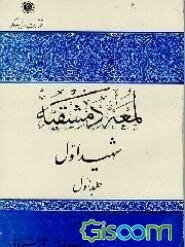 لمعه دمشقیه
شهید اول
جلد اول
Gisoom
.com